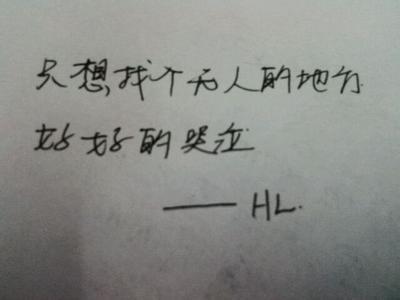 只想找个无人的地方
好好的哭泣
—— HL.